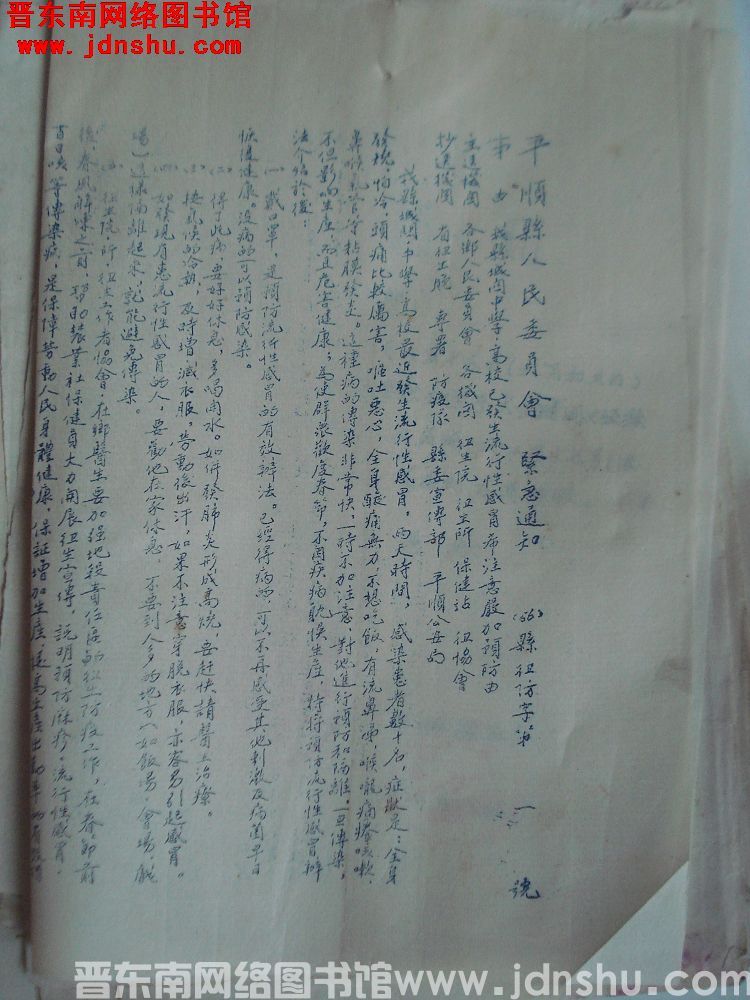 晋东南网络图书馆
www.jdnshu.com
平順縣人民委員會 緊急通知 (56)縣衛防字第 一 號
事 由 我縣城関中學高校已發生流行性感冒希注意嚴加預防由
主送機関 各鄉人民委員會 各機関 衛生院 衛生所 保健站 衛協會
抄送機関 省衛生廳 專署 防疫隊 縣委宣傳部 平順公安局
我縣城関,中學,高校最近發生流行性感冒。両天時間,感染患者數十名,症狀是:全身
發燒,怕冷,頭痛比較厲害,嘔吐惡心,全身酸痛無力,不想吃飯,有流鼻涕,喉嚨痛痒咳嗽,
鼻喉氣管等粘膜發炎。這種病的傳染非常快,一時不加注意,對他進行預防和隔離,一旦傳染,
不但影响生產,而且危害健康;為使群眾歡度春節,不因疾病耽悞生產,特將預防流行性感冒辦
法介紹於後:
(一)戴口罩,是預防流行性感冒的有效辦法。已經得病的,可以不再感受其他刺激及病菌早日
恢復健康。沒病的可以預防感染。
(二)得了此病,要好好休息,多喝開水。如併發肺炎形成高燒,要赶快請醫生治療。
(三)按氣候的冷熱,及時增減衣服。勞動後出汗,如果不注意穿脫衣服,亦容易引起感冒。
(四)如發現有患流行性感冒的人,要勸他在家休息,不要到人多的地方(如飯場,會場,戲
場)這樣隔離起來,就能避免傳染。
(五)衛生院,所,衛生工作者協會,在鄉醫生要加强地段責任區的衛生防疫工作,在春節前
後,春風解凍之前,協助農業社保健員大力開展衛生宣傳,說明預防麻疹,流行性感冒,
百日咳等傳染病,是保障勞動人民身體健康,保証增加生產,提高生產出勤率的有效措
晋东南网络图书馆www.jdnshu.com